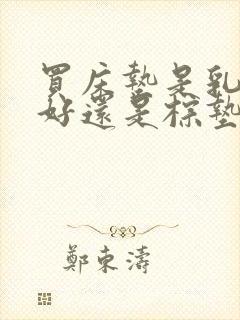 買床墊是乳
好還是棕墊
鄭東濤